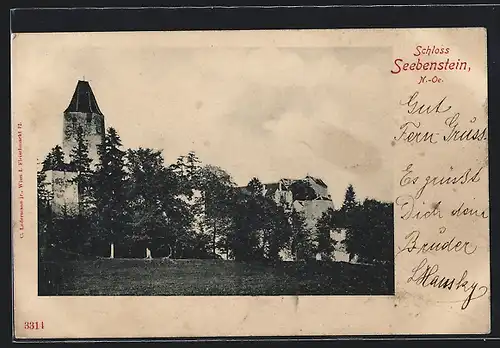 Schloss
Seebenstein,
N.-Oe.
Gut
Fern Gruss
Es grüsst
Dich dein
Bruder
C. Ledermann jr., Wien I. Fleischmarkt 12.
3314